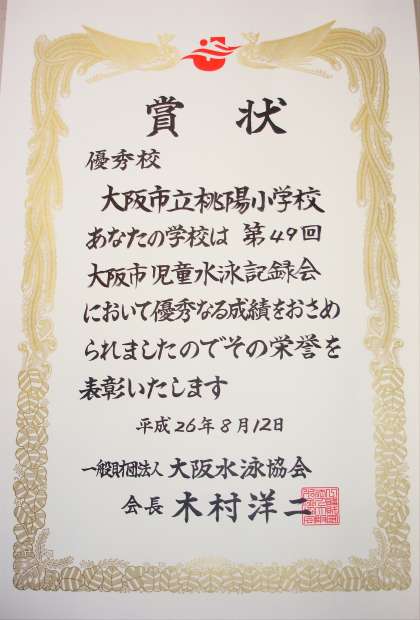 賞状
優秀校
大阪市立桃陽小学校
あなたの学校は 第49回
大阪市児童水泳記録会
において優秀なる成績をおさめ
られましたのでその栄誉を
表彰いたします
平成26年8月12日
一般財団法人 大阪水泳協会
会長 木村洋二